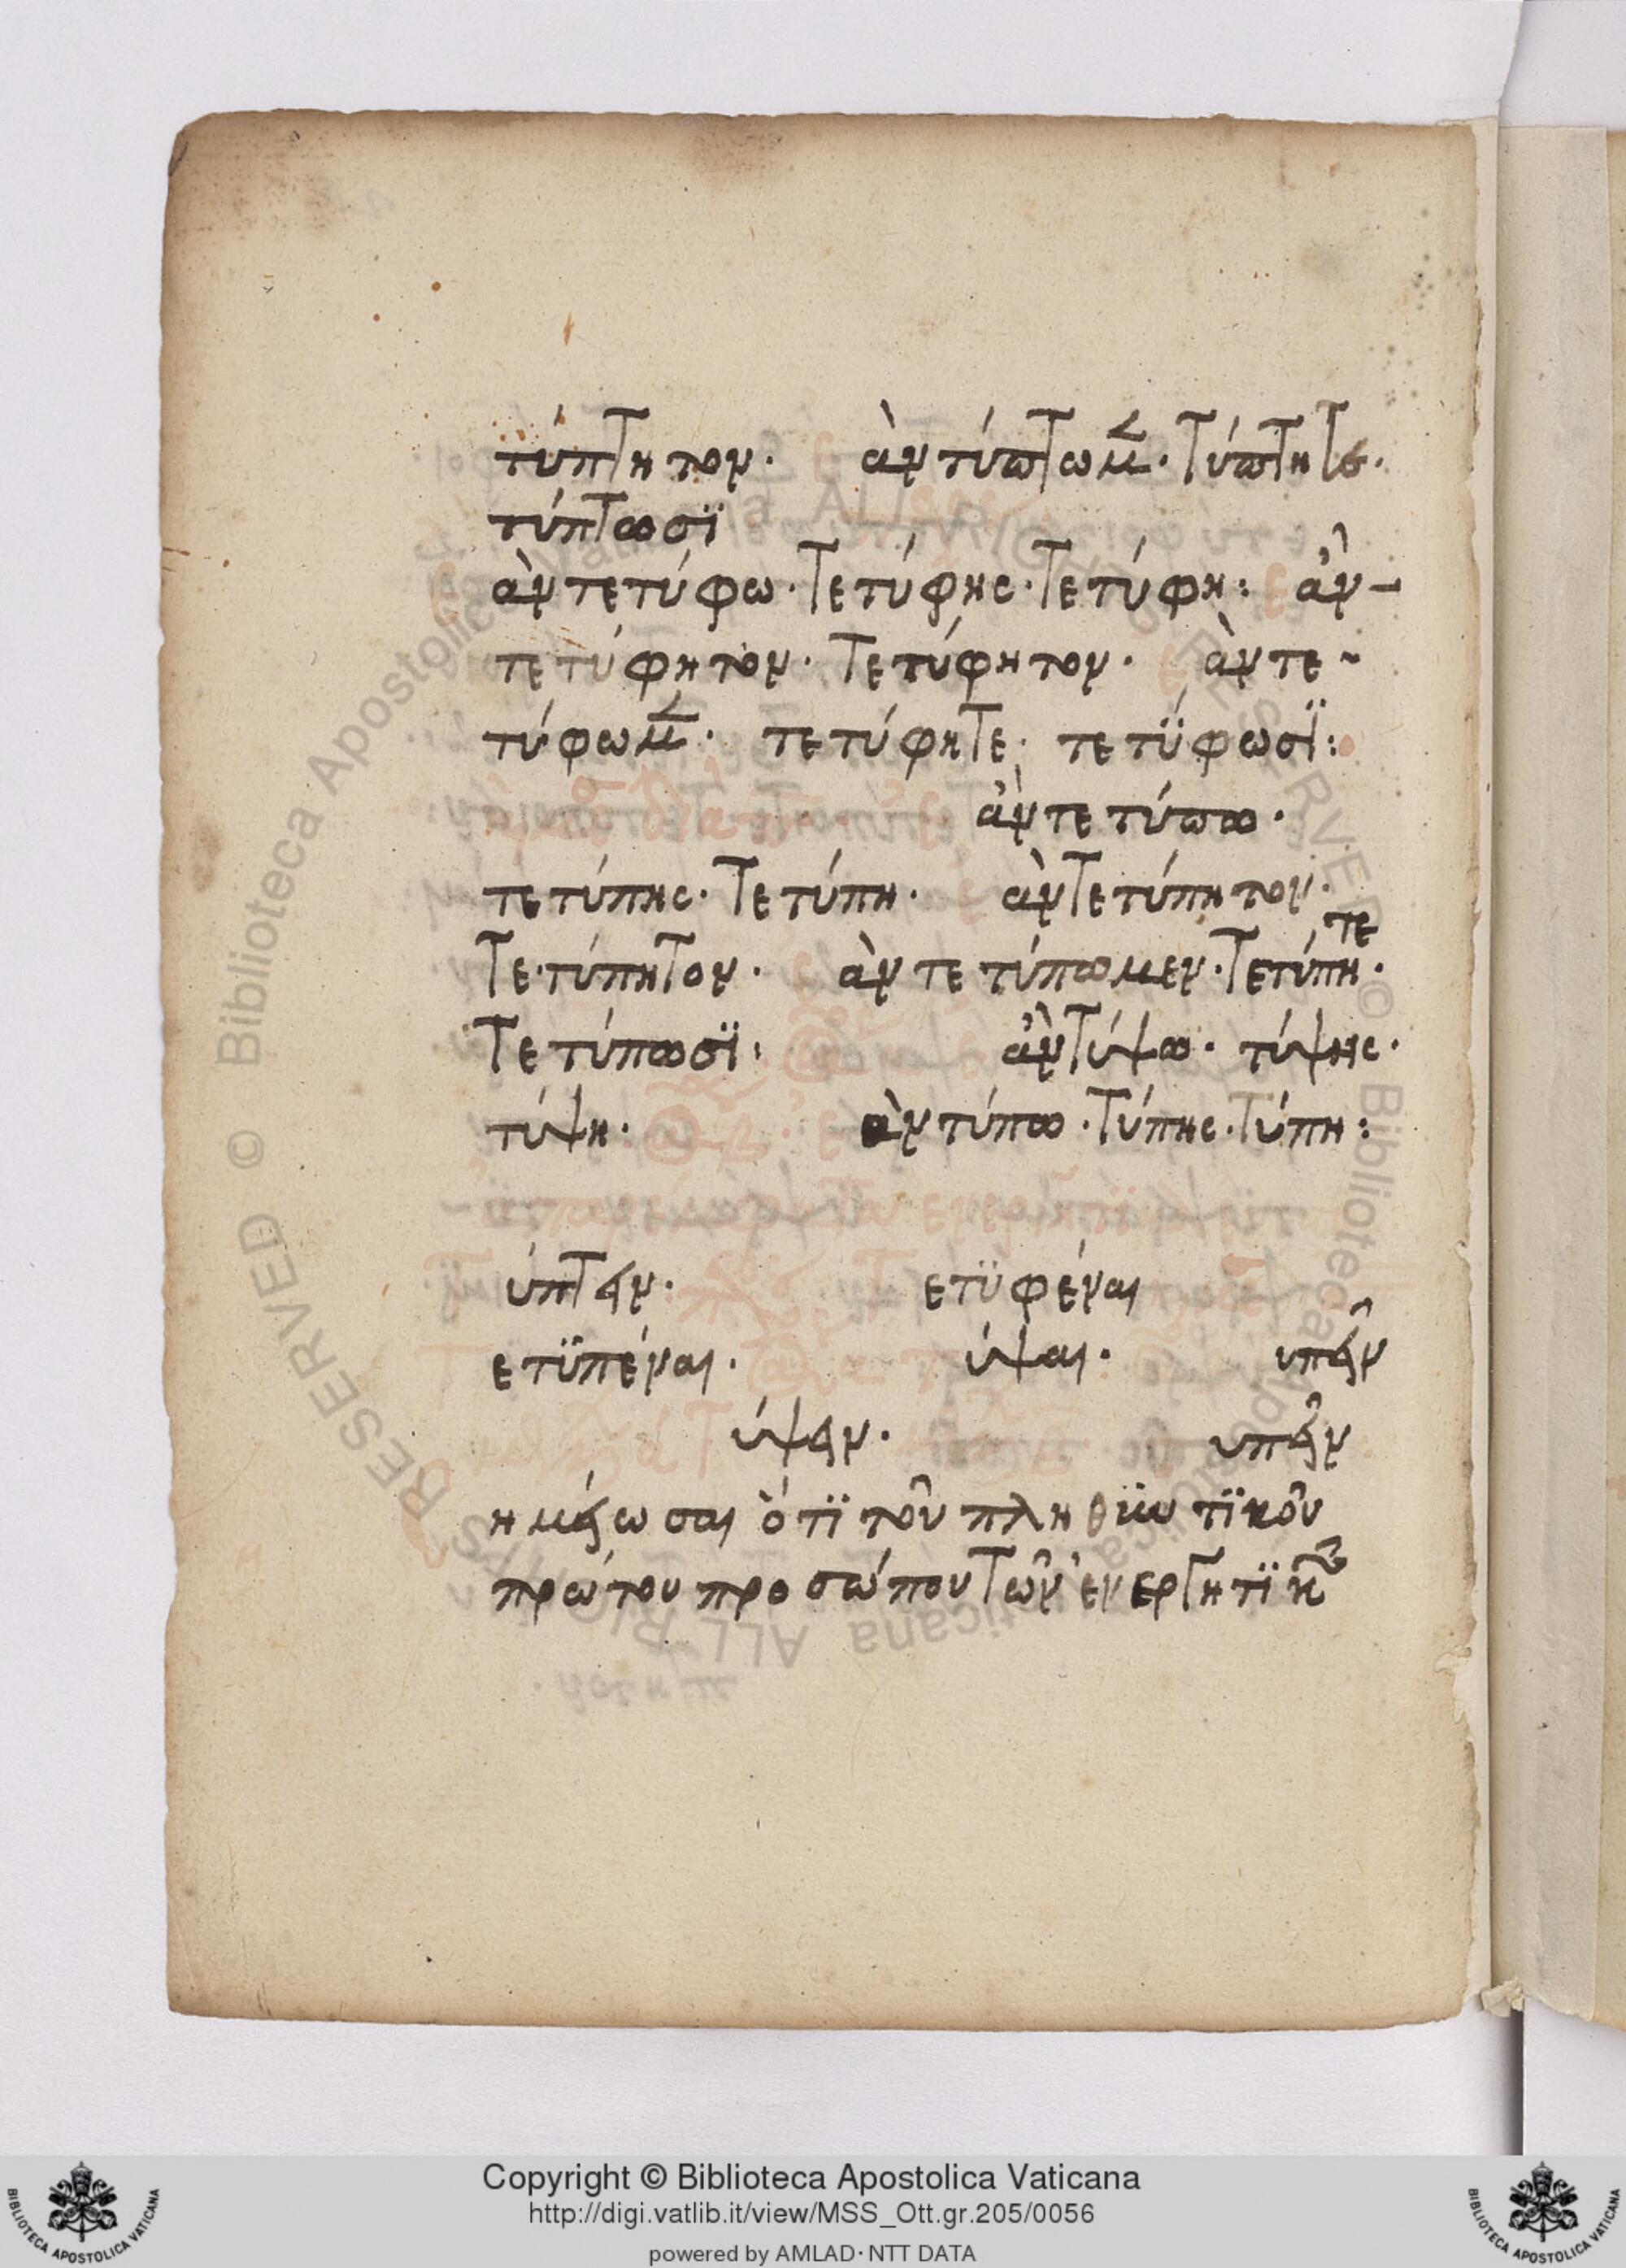 τύπτητον. ἀν τύπτωμ. τύπτητε.
τύπτωσϊ
ἀν τετύφω. τετύφης. τετύφη: ἀν-
τετύφητον. τετύφητον. ἀν τε~
τύφωμ. τετύφητε. τετϋφωσϊ:
ἀν τετύπω.
τετύπης. τετύπη. ἀν τετύπητον.
τε.τύπητον. ἀν τετύπωμεν. τετύπητε.
τετύπωσϊ: ἀν τύψω. τύψης.
τύψη. ἀν τύπω. τύπης. τύπη:
ύπτειν. ετϋφέναι
ετϋπέναι. ύψαι. υπεῖν
ύψειν. υπεῖν
ημείωσαι ὅτϊ τοῦ πληθϋντϊκοῦ
πρώτου προσώπου τῶν ἐνεργητϊκῶ
Copyright © Biblioteca Apostolica Vaticana
http://digi.vatlib.it/view/MSS_Ott.gr.205/0056
powered by AMLAD·NTT DATA
BIBLIOTECA APOSTOLICA VATICANA
BIBLIOTECA APOSTOLICA VATICANA